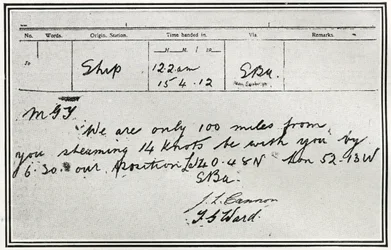 No. Words. Origin. Station. Time handed in. Via. Remarks.
H. M. / 19
To
Ship 12.2 am SBa.
15.4.12
MGY
We are only 100 miles from
you steaming 14 knots be with you by
6.30. our position Lat 40.48N Lon 52.13W
SBa.
J. L. Cannon
T. G. Ward.